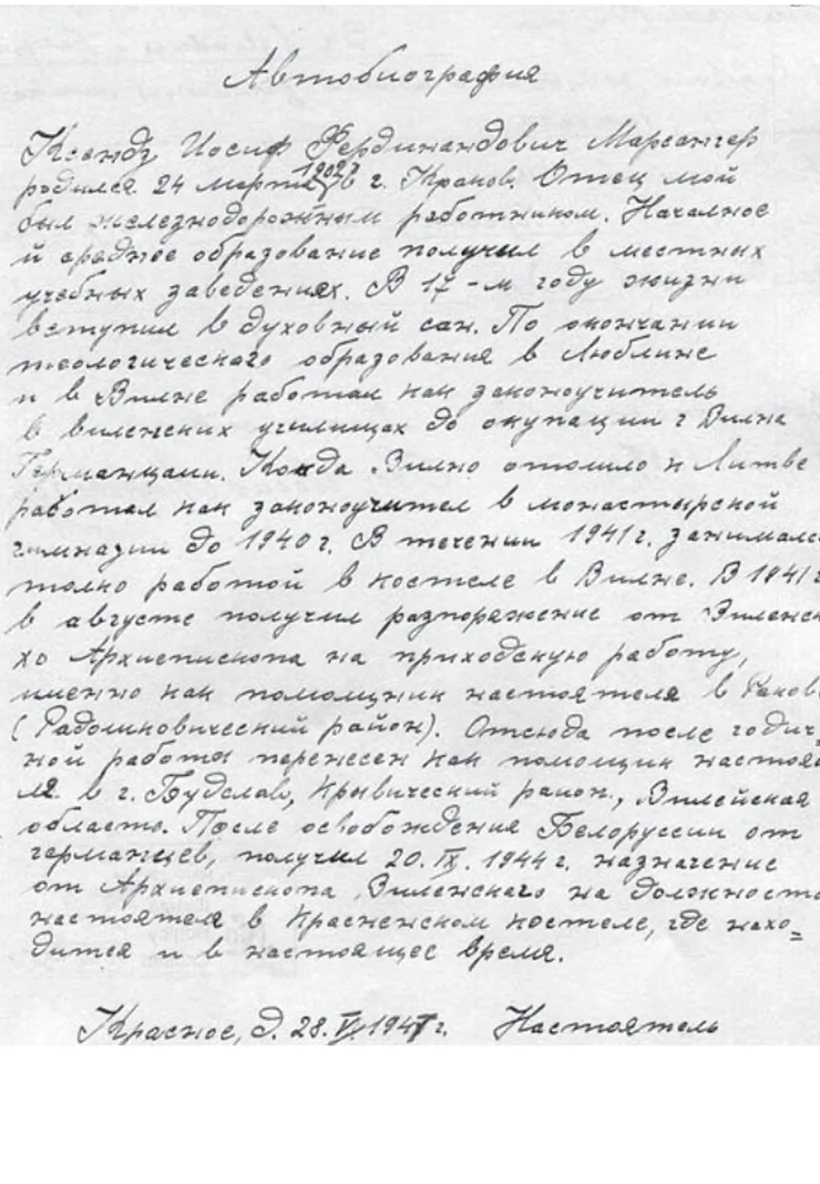 Автобиография
Ксендз Иосиф Фердинандович Марсангер
родился 24 марта 1902 в г. Краков. Отец мой
был железнодорожным работником. Началное
и среднее образование получил в местных
учебных заведениях. В 17-м году жизни
вступил в духовный сан. По окончании
теологического образования в Люблине
и в Вилне работал как законоучитель
в виленских училищах до окупации г Вилна
Германцами. Когда Вилно отошло к Литве
работал как законоучител в монастырской
гимназии до 1940 г. В течении 1941 г. занимался
толко работой в костеле в Вилне. В 1941 г
в августе получил разпоряжение от Виленск
хо Архиепископа на приходскую работу,
именно как помощник настоятеля в Раков
(Радошковический район). Отсюда после годич
ной работы перенесен как помощик настоя
ля в г. Будслав, Крывический район, Вилейская
область. После освобождения Белоруссии от
германцев, получил 20. IX. 1944 г. назначение
от Архиепископа Виленскаго на должность
настоятеля в Красненском костеле, где нахо=
дится и в настоящее время.
Красное, д. 28. V. г. Настоятель